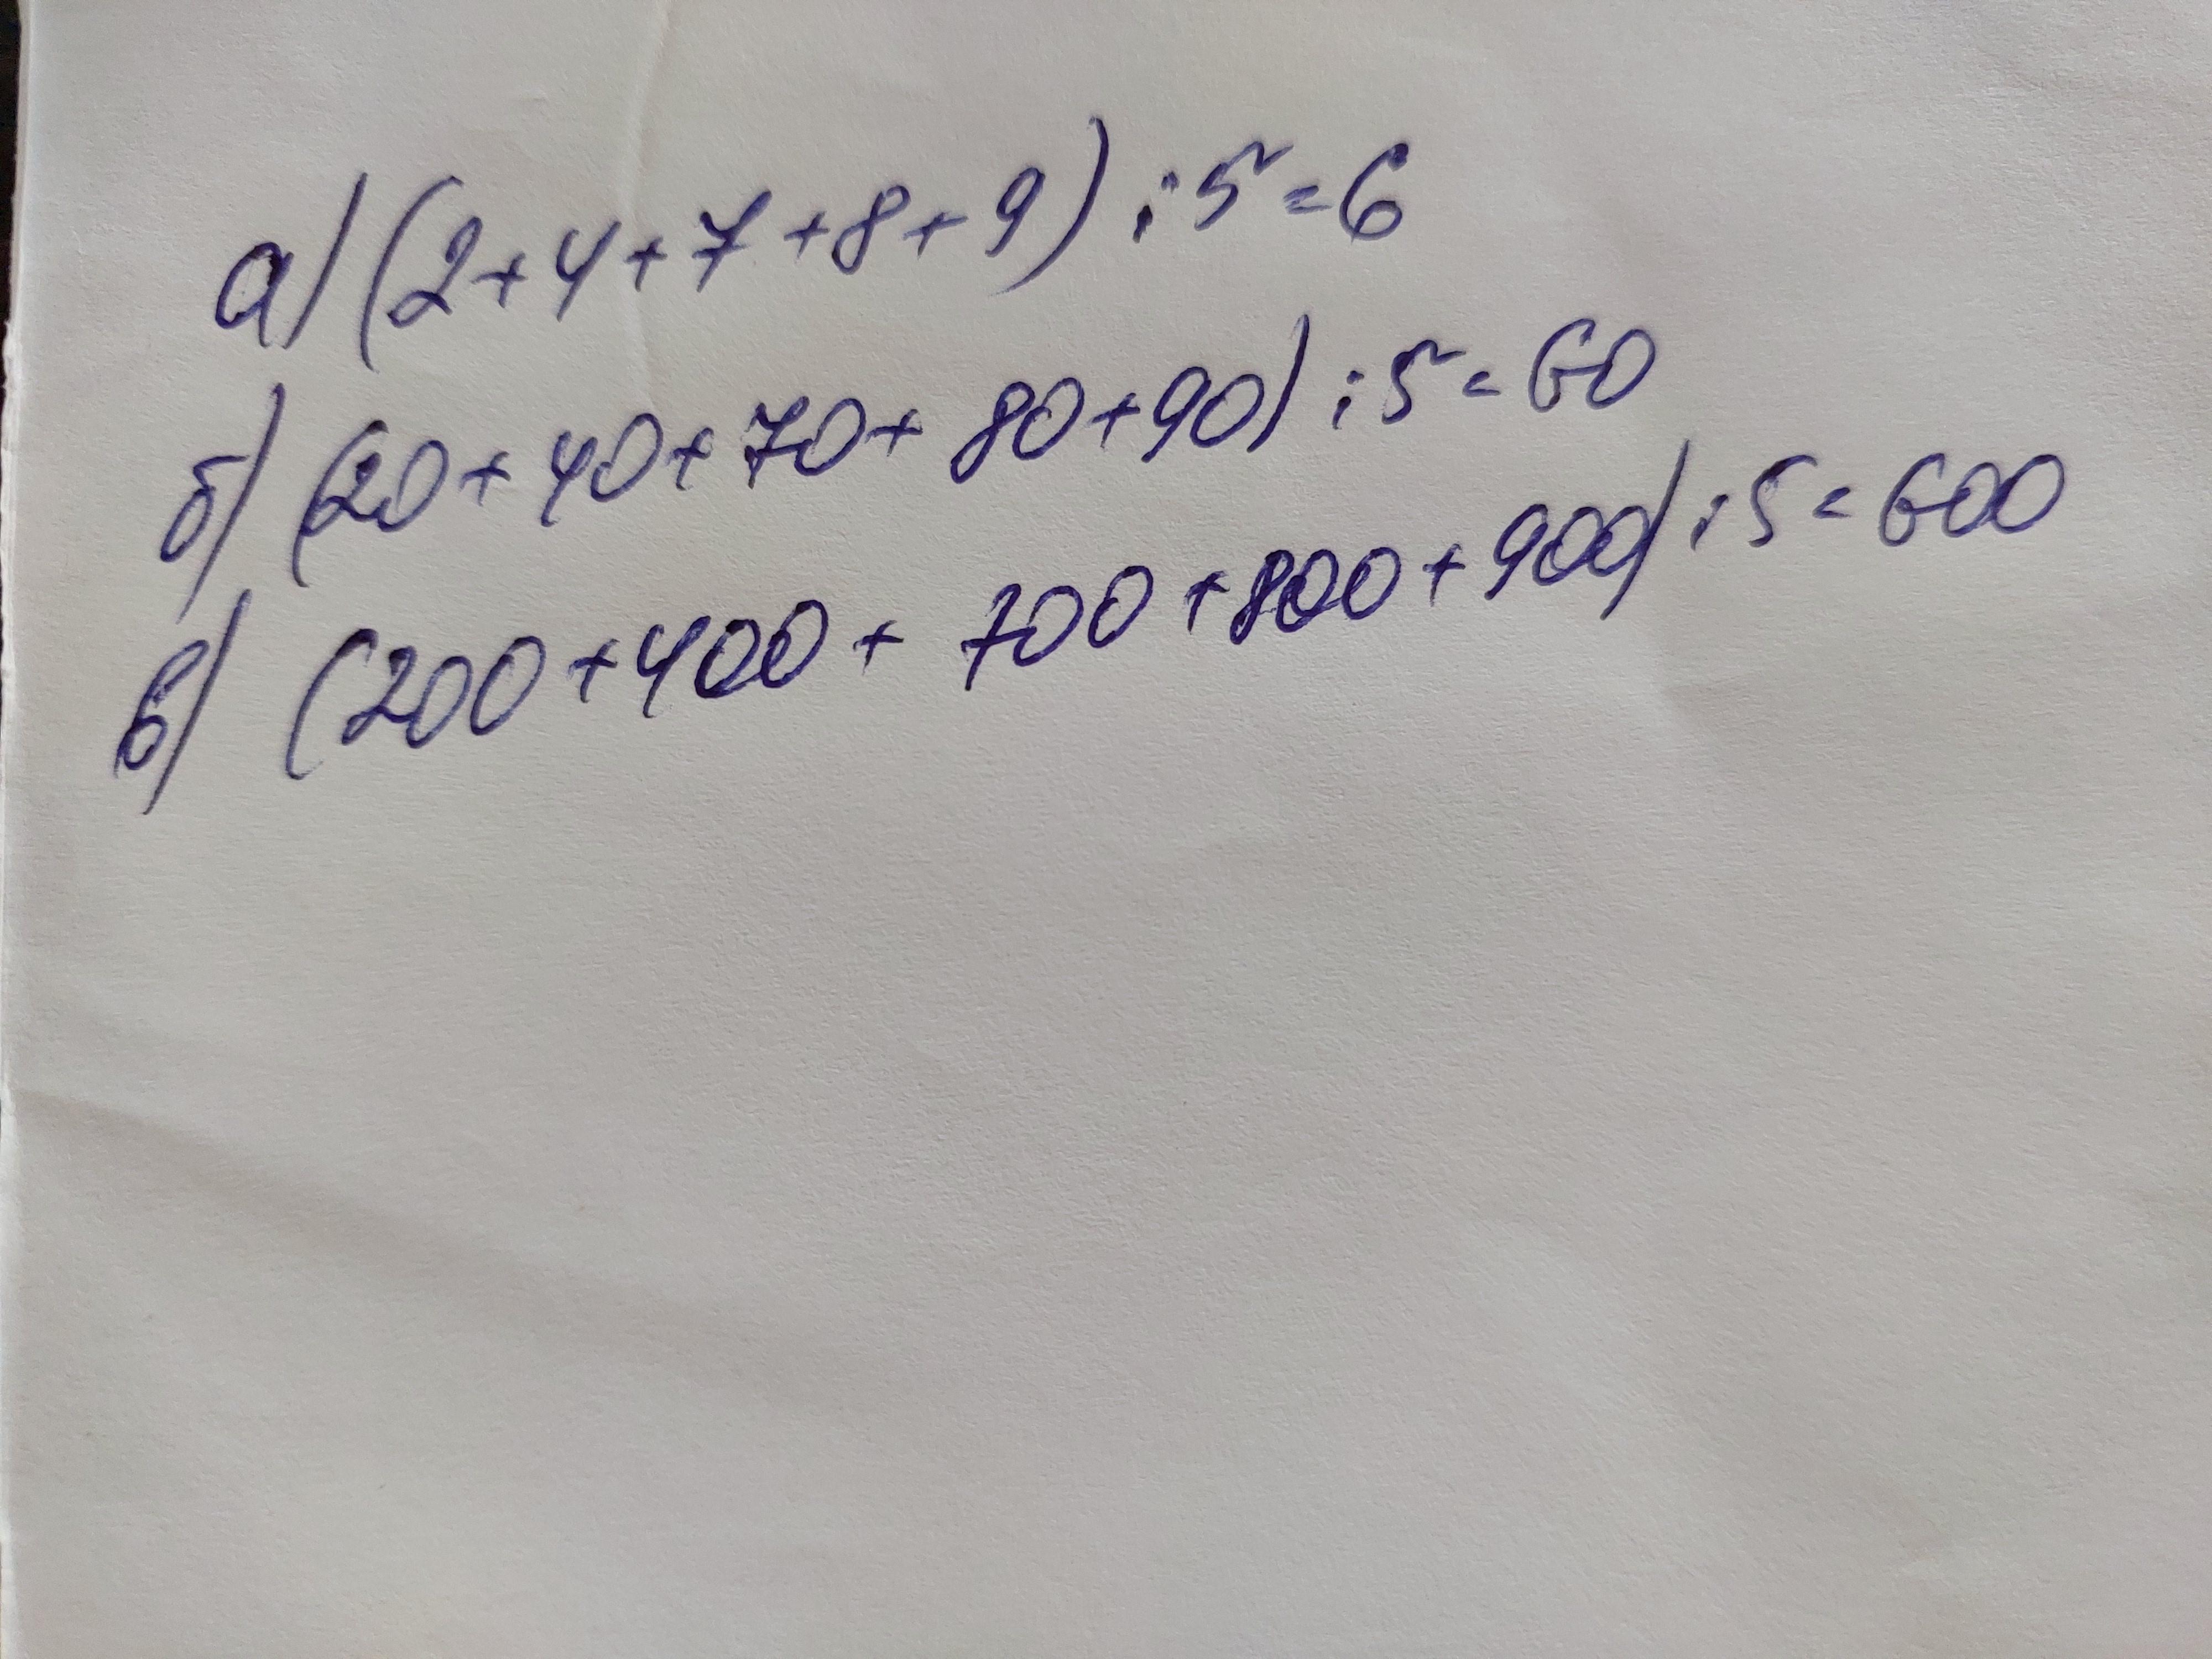 а) (2+4+7+8+9):5=6
б) (20+40+70+80+90):5=60
в) (200+400+700+800+900):5=600